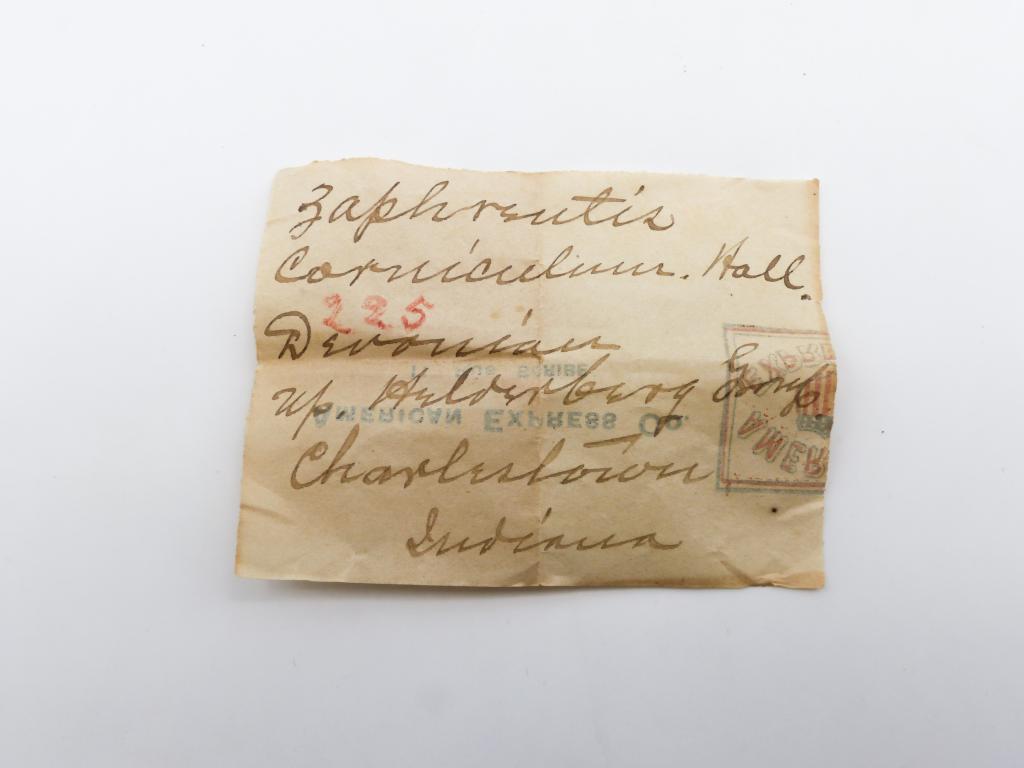 Zaphrentis
Corniculum. Hall.
225
Devonian
up. Helderberg Group
AMERICAN EXPRESS CO.
Charlestown
Indiana